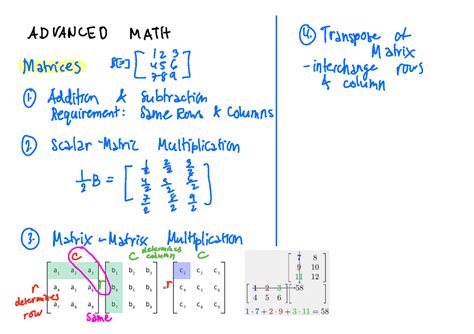 ADVANCED MATH
Matrices
1 2 3
4 5 6
7 8 9
1. Addition & Subtraction
Requirement: Same Rows & Columns
2. Scalar-Matrix Multiplication
1/2 B =
1/2 2/2 3/2
4/2 5/2 6/2
7/2 8/2 9/2
3. Matrix-Matrix Multiplication
C
C determines column
C
r determines row
a₁ a₂ a₃
b₁ b₂ b₃
c₁ c₂ c₃
r
=r
same
7 8
9 10
11 12
1 2 3
4 5 6
58
1·7+2·9+3·11=58
4. Transpose of Matrix
- interchange rows
& column